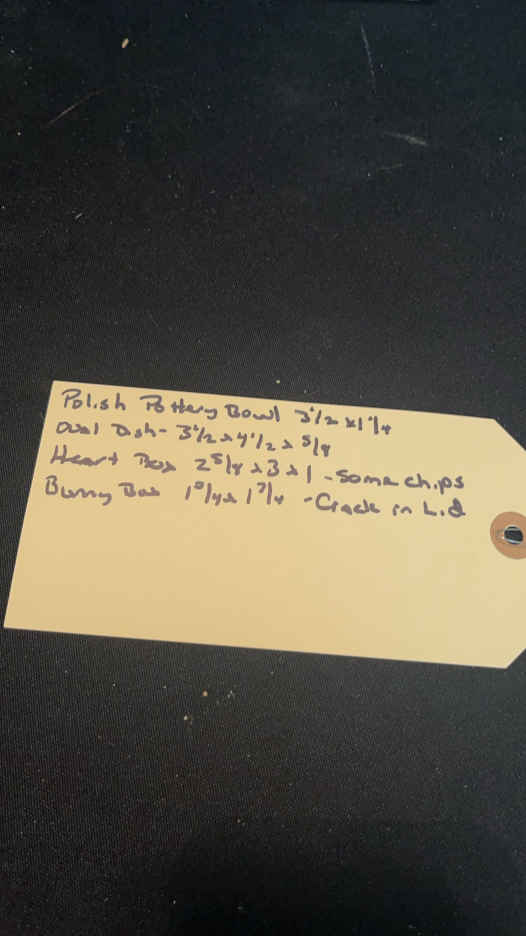 Polish Pottery Bowl 3 1/2 x 1 1/4
Oval Dish - 3 1/2 x 4 1/2 x 5/8
Heart Box 2 5/8 x 3 x 1 - Some chips
Bunny Box 1 x 1 7/8 - Crack in Lid